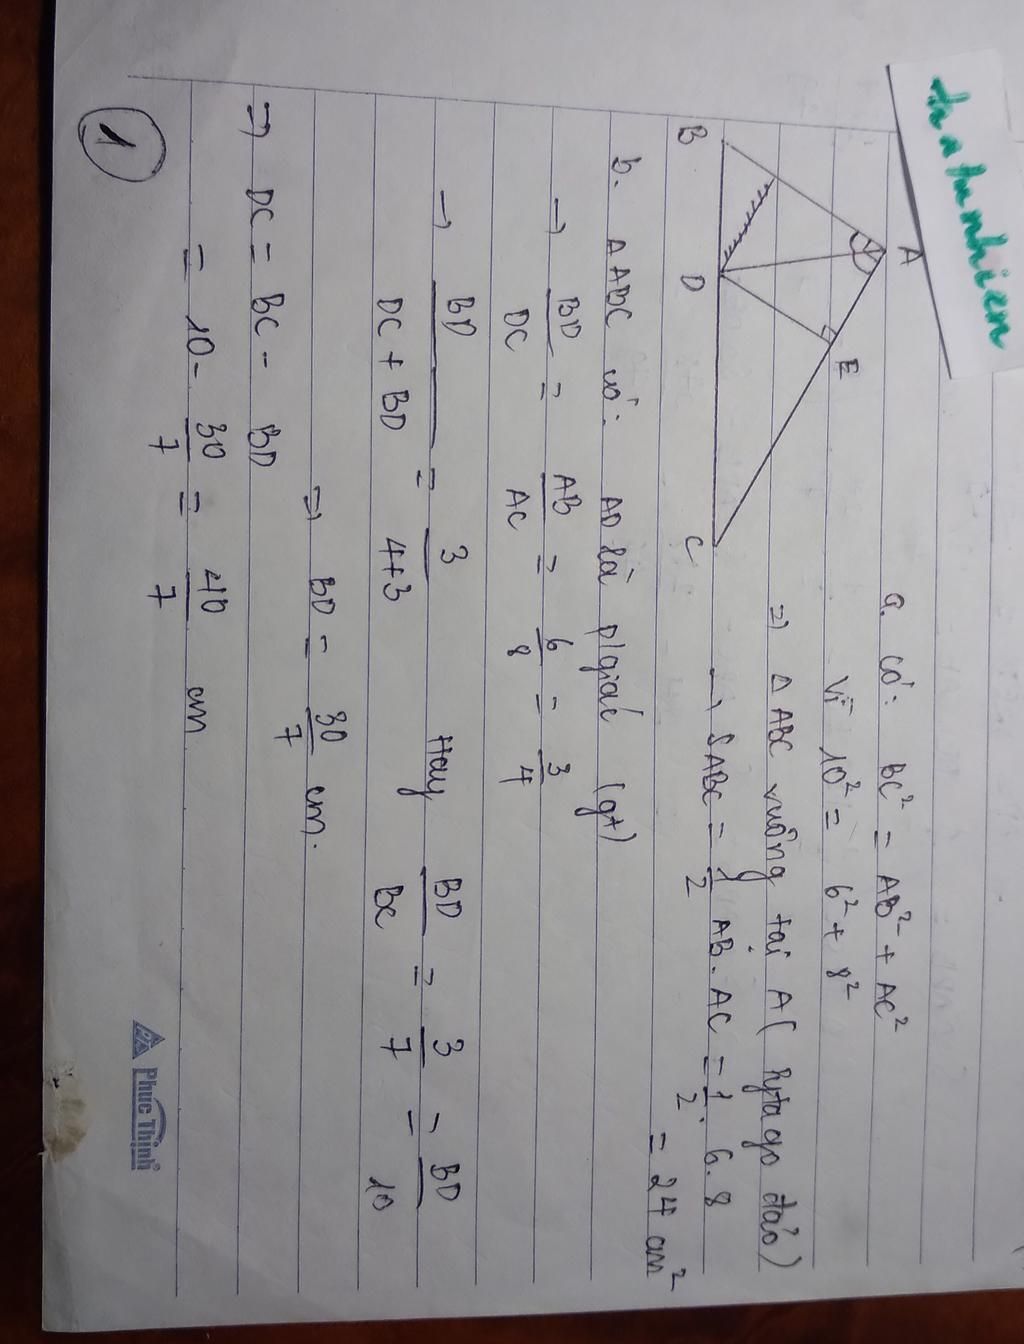 tratunhien
A
B
D
C
E
a. Có: BC² = AB² + AC²
Vì 10² = 6² + 8²
=> Δ ABC vuông tại A ( Pytago đảo)
→ SABC = 1/2 AB. AC = 1/2 . 6.8
= 24 cm²
b. ΔABC có: AD là p/giác (gt)
→ BD/DC = AB/AC = 6/8 = 3/4
→ BD/(DC + BD) = 3/(4+3) Hay BD/BC = 3/7 = BD/10
=> BD = 30/7 cm.
=> DC = BC - BD
= 10 - 30/7 = 40/7 cm
1
Phuc Thịnh